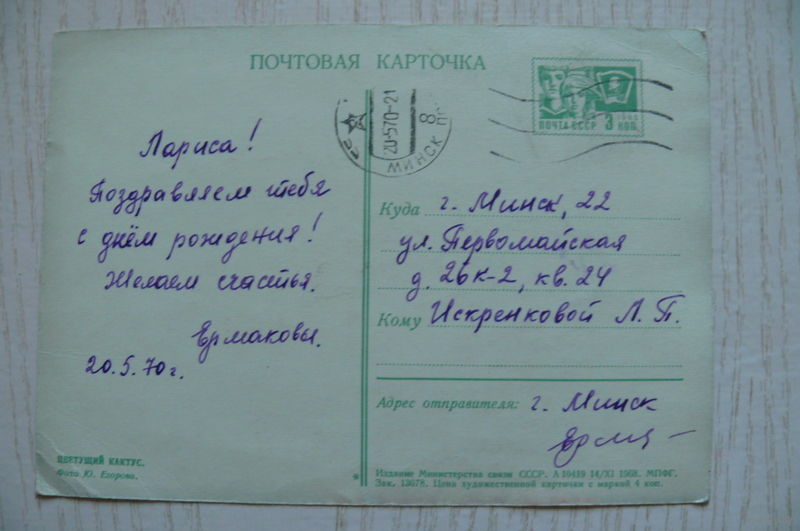 ПОЧТОВАЯ КАРТОЧКА
ПОЧТА СССР 3 КОП.
1966
20-570-21
МИНСК
8
Лариса!
Поздравляем тебя
с днём рождения!
Желаем счастья.
Ермаковы.
20.5.70г.
Куда г. Минск, 22
ул. Первомайская
д. 26 к-2, кв. 24
Кому Искренковой Л. П.
Адрес отправителя: г. Минск
ЦВЕТУЩИЙ КАКТУС.
Фото Ю. Егорова.
Издание Министерства связи СССР. А 10419 14/XI 1968. МПФГ.
Зак. 13078. Цена художественной карточки с маркой 4 коп.